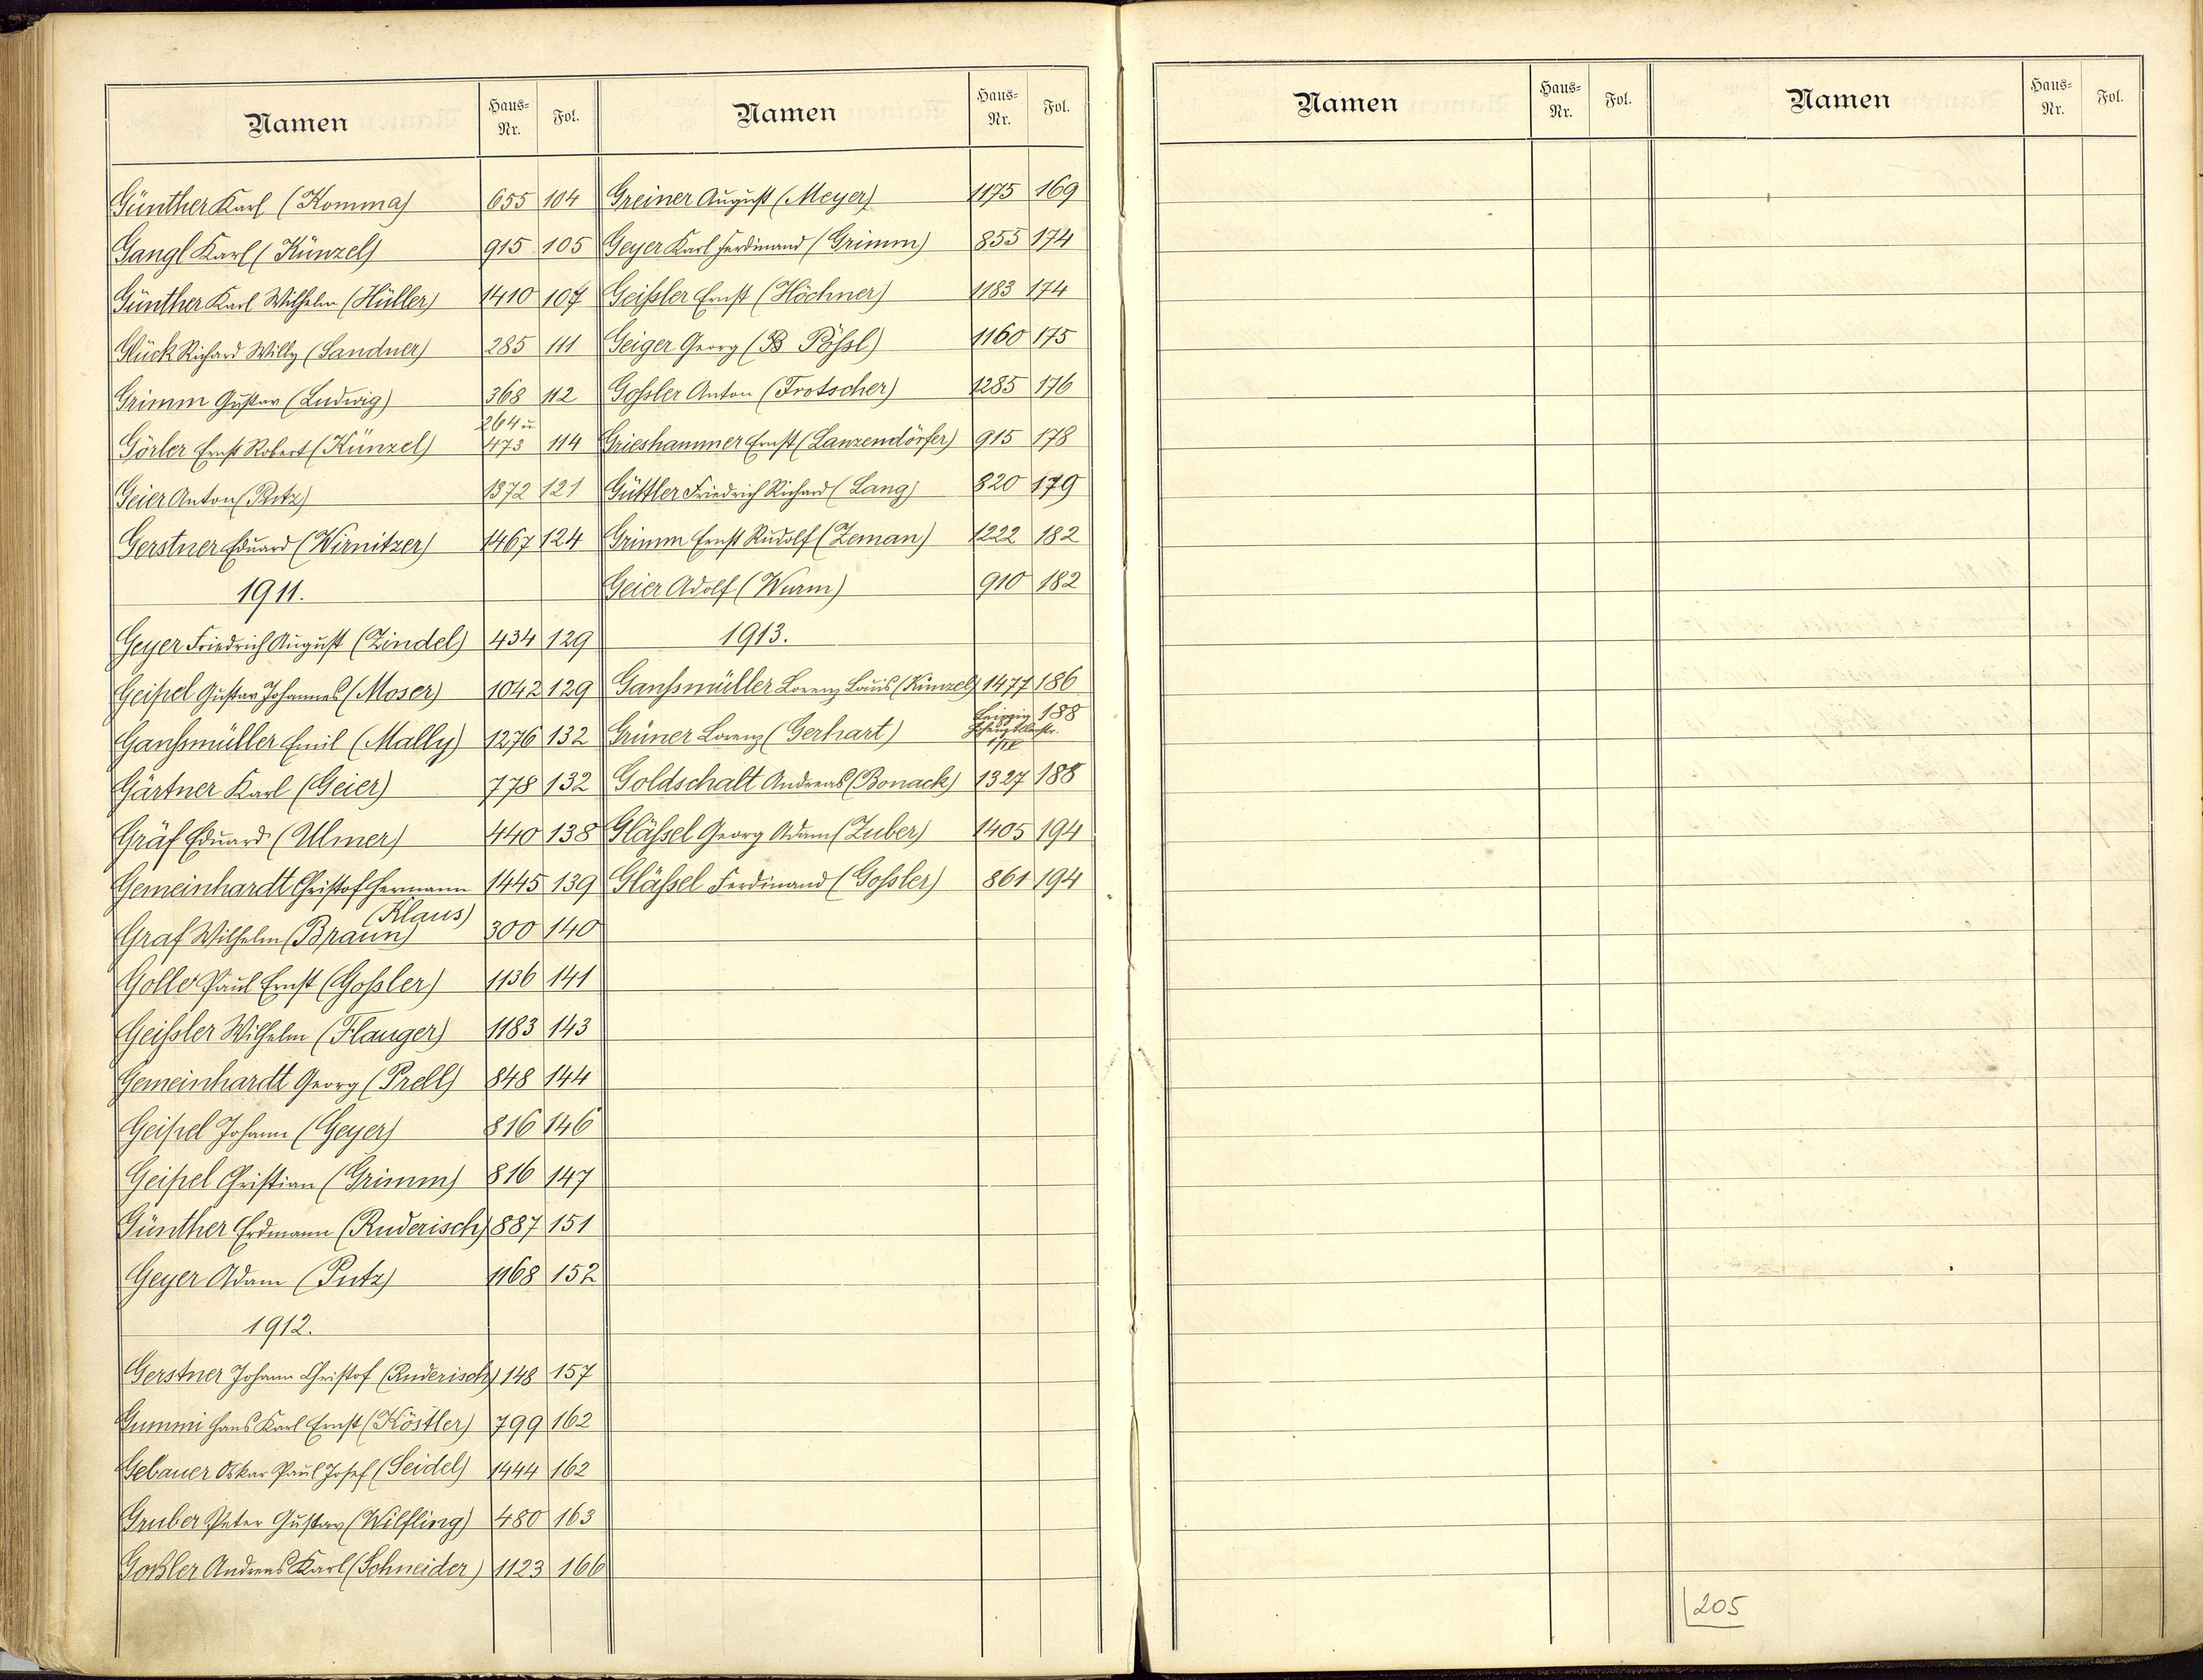 Namen Haus-Nr. Fol.
Günther Karl (Komma) 655 104
Gangl Karl (Künzel) 915 105
Günther Karl Wilhelm (Hüller) 1410 107
Glück Richard Willy (Sandner) 285 111
Grimm Gustav (Ludwig) 368 112
264 u.
Görler Ernst Robert (Künzel) 473 114
Geier Anton (Putz) 1372 121
Gerstner Eduard (Wirnitzer) 1467 124
1911.
Geyer Friedrich August (Zindel) 434 129
Geipel Gustav Johannes (Moser) 1042 129
Ganßmüller Emil (Mally) 1276 132
Gärtner Karl (Geier) 778 132
Gräf Eduard (Ulmer) 440 138
Gemeinhardt Christof Hermann 1445 139
(Klaus)
Graf Wilhelm (Braun) 300 140
Goller Paul Ernst (Goßler) 1136 141
Geißler Wilhelm (Flauger) 1183 143
Gemeinhardt Georg (Prell) 848 144
Geipel Johann (Geyer) 816 146
Geipel Christian (Grimm) 816 147
Günther Erdmann (Ruderisch) 887 151
Geyer Adam (Putz) 1168 152
1912.
Gerstner Johann Christof (Ruderisch) 148 157
Gummi Hans Karl Ernst (Köstler) 799 162
Gebauer Oskar Paul Josef (Seidel) 1444 162
Gruber Peter Gustav (Wilfling) 480 163
Goßler Andreas Karl (Schneider) 1123 166
Namen Haus-Nr. Fol.
Greiner August (Meyer) 1175 169
Geyer Karl Ferdinand (Grimm) 855 174
Geißler Ernst (Höchner) 1183 174
Geiger Georg (B Pößl) 1160 175
Goßler Anton (Trotscher) 1285 176
Grieshammer Ernst (Lanzendörfer) 915 178
Güttler Friedrich Richard (Lang) 820 179
Grimm Ernst Rudolf (Zeman) 1222 182
Geier Adolf (Wurm) 910 182
1913.
Ganßmüller Lorenz Louis (Künzel) 1477 186
Leipzig 188
Grüner Lorenz (Gerhart)
1/IV
Goldschalt Andreas (Bonack) 1327 188
Gläßel Georg Adam (Zuber) 1405 194
Gläßel Ferdinand (Goßler) 861 194
Namen Haus-Nr. Fol.
Namen Haus-Nr. Fol.
205